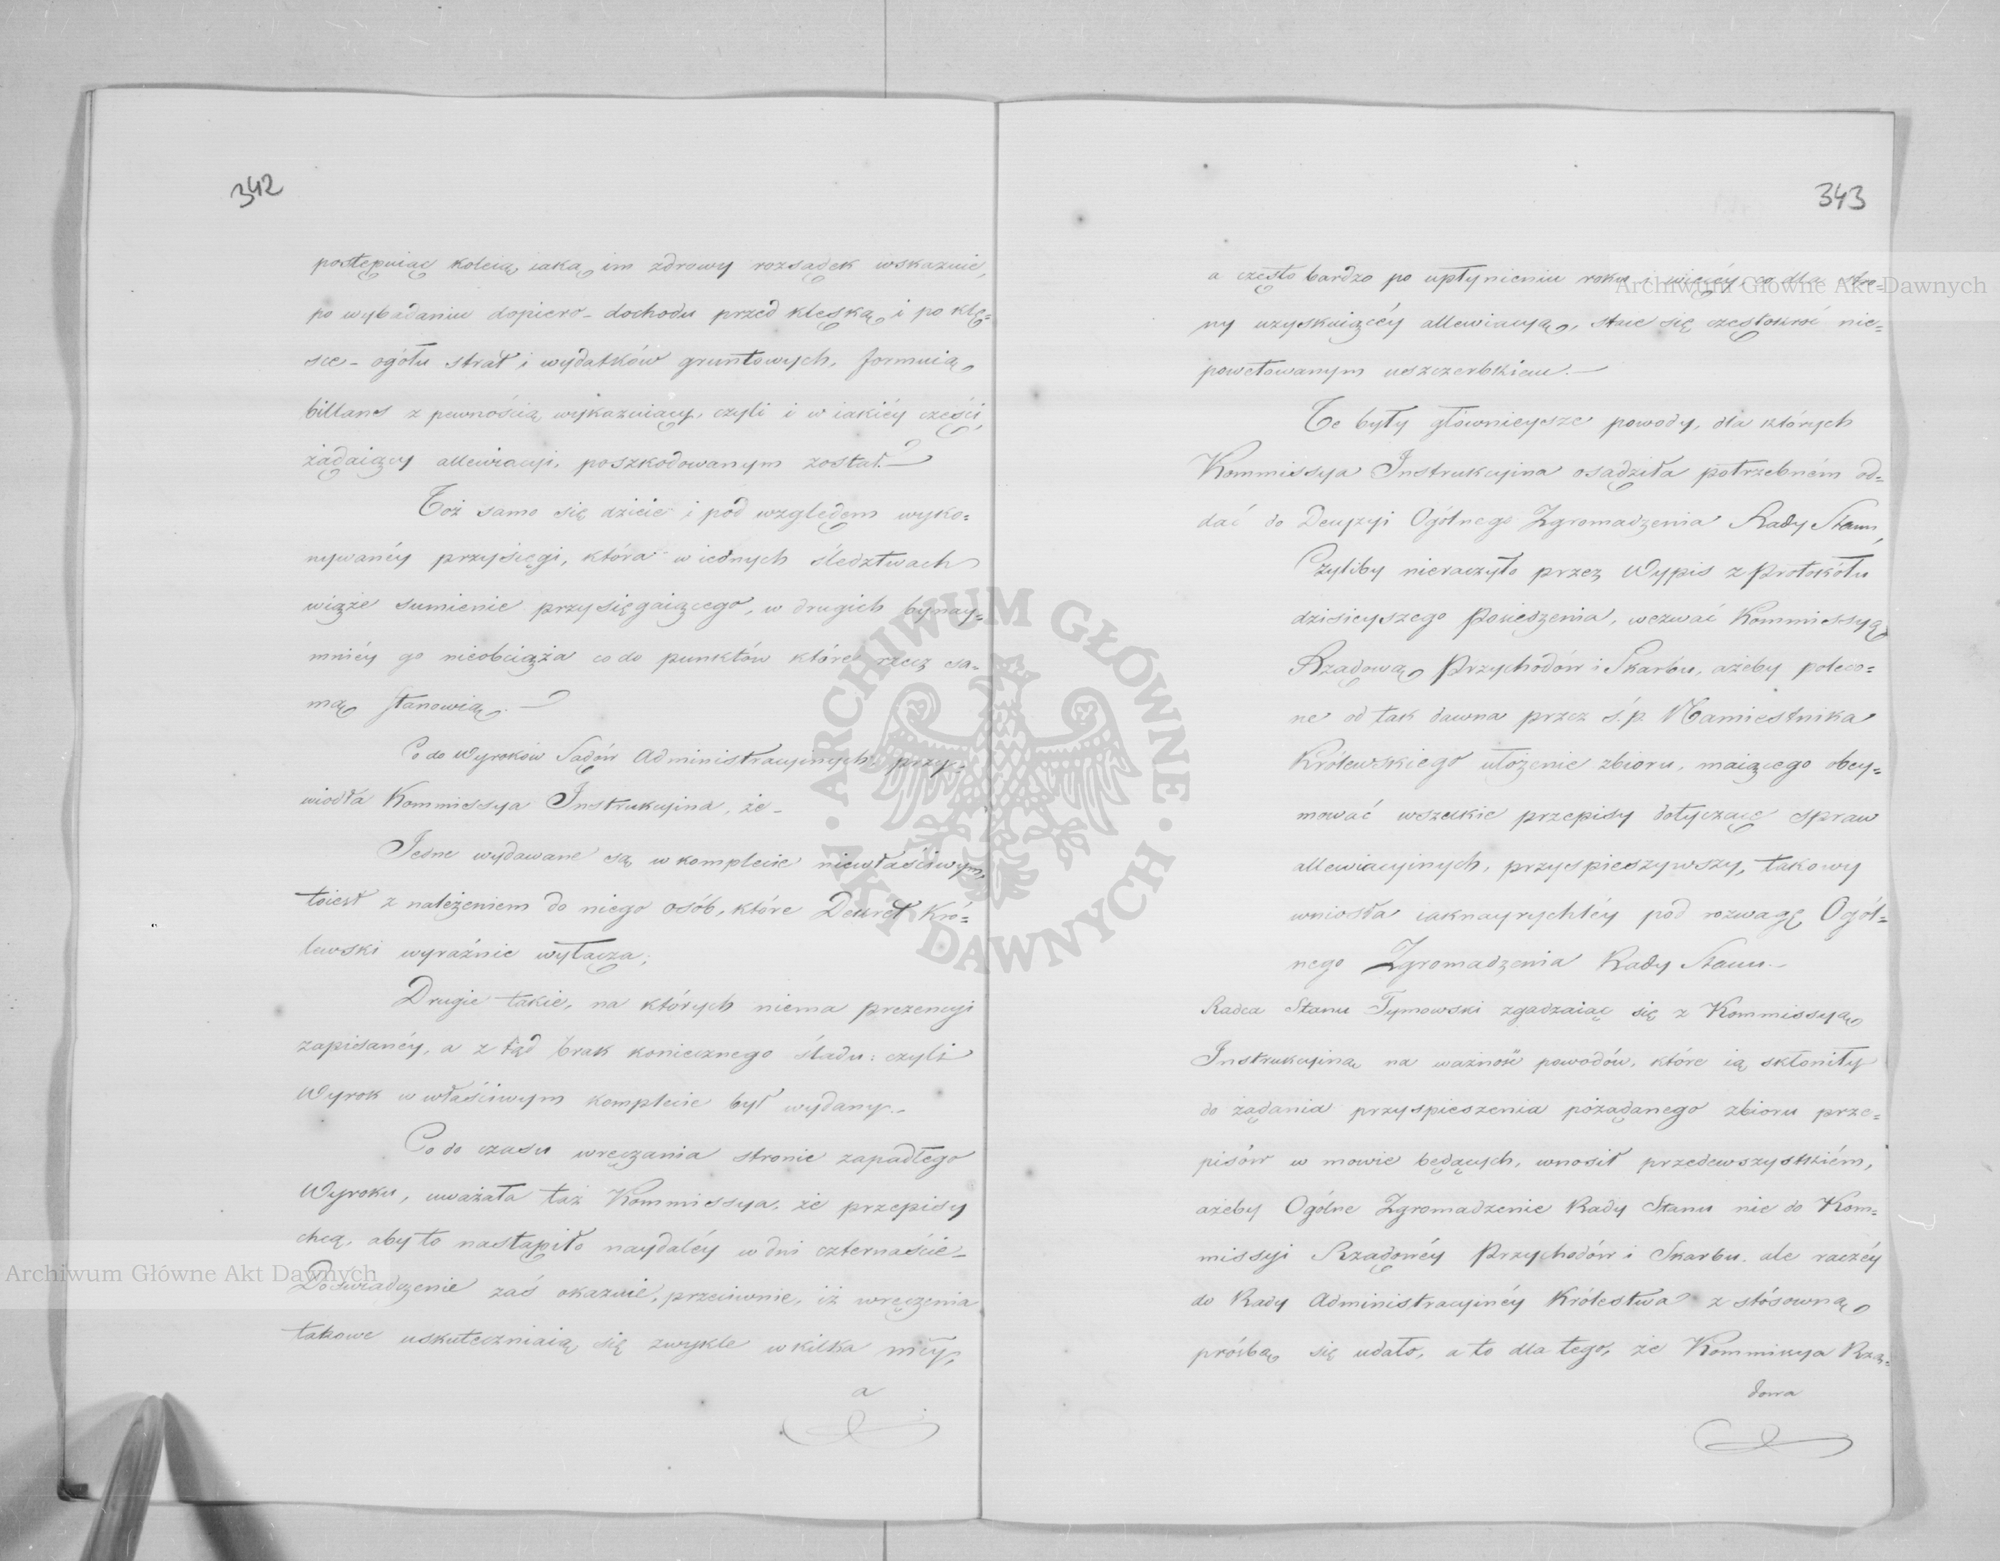 342
postępuiąc koleią iaką im zdrowy rozsądek wskazuie,
po wybadaniu dopiero dochodu przed klęską i po klę=
sce ogółu strat i wydatków gruntowych, formuią
billans z pewnością wykazuiący, czyli i w iakiéy części
żądaiący allewiacyi, poszkodowanym został.
Toż samo się dzieie i pod względem wyko=
nywanéy przysięgi, która w iednych śledztwach
wiąże sumienie przysięgaiącego, w drugich bynay=
mniéy go nieobciąża co do punktów które rzecz sa=
mą stanowią.
Co do Wyroków Sądów Administracyinych, przy=
wiodła Kommissya Instrukcyina, że
Jedne wydawane są w komplecie niewłaściwym,
toiest z należeniem do niego osób, które Dekret Kró=
lewski wyraźnie wyłącza;
Drugie takie, na których niema prezencyi
zapisanéy, a z tąd brak koniecznego śladu: czyli
Wyrok w właściwym komplecie był wydany.
Co do czasu wręczania stronie zapadłego
Wyroku, uważała taż Kommissya, że przepisy
chcą, aby to nastąpiło naydaléy w dni czternaście
Doświadczenie zaś okazuie, przeciwnie, iż wręczenia
takowe uskuteczniaią się zwykle w kilka mcy,
a
343
a często bardzo po upłynieniu roku i więcéy, co dla stro=
ny uzyskuiącéy allewiacyą, staie się częstokroć nie=
powetowanym uszczerbkiem.
Te były głównieysze powody, dla których
Kommissya Instrukcyina osądziła potrzebném od=
dać do Decyzyi Ogólnego Zgromadzenia Rady Stanu,
Czyliby nieraczyło przez Wypis z Protokółu
dzisieyszego Posiedzenia, wezwać Kommissyą
Rządową Przychodów i Skarbu, ażeby poleco=
ne od tak dawna przez ś.p. Namiestnika
Królewskiego ułożenie zbioru, maiącego obey=
mować wszelkie przepisy dotyczące spraw
allewiacyinych, przyspieszywszy, takowy
wniosła iaknayrychléy pod rozwagę Ogól=
nego Zgromadzenia Rady Stanu.
Radca Stanu Tymowski zgadzaiąc się z Kommissyą
Instrukcyiną na ważność powodów, które ią skłoniły
do żądania przyspieszenia pożądanego zbioru prze=
pisów w mowie będących, wnosił przedewszystkiém,
ażeby Ogólne Zgromadzenie Rady Stanu nie do Kom=
missyi Rządowéy Przychodów i Skarbu, ale raczéy
do Rady Administracyinéy Królestwa z stósowną
prośbą się udało, a to dla tego, że Kommissya Rzą=
dowa
Archiwum Główne Akt Dawnych
Archiwum Główne Akt Dawnych
ARCHIWUM GŁÓWNE AKT DAWNYCH